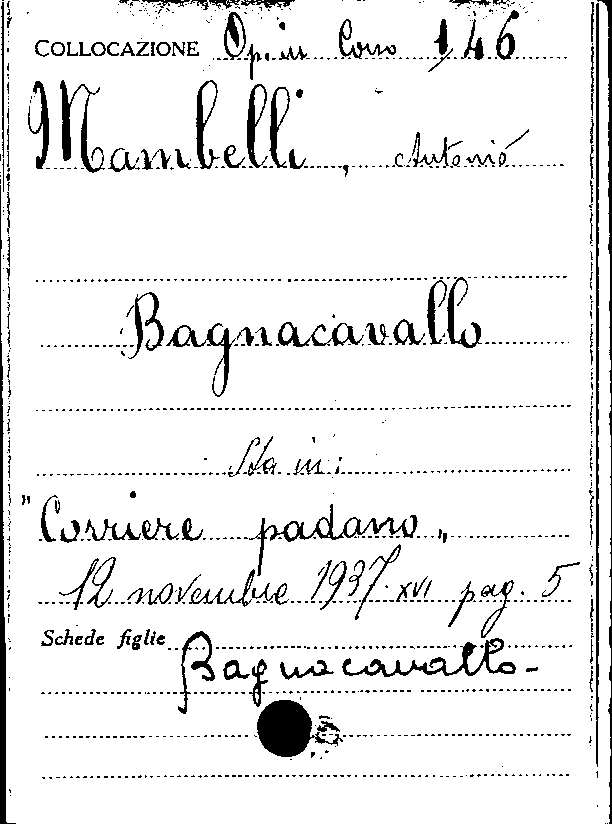 COLLOCAZIONE Op. in Corso 1,46
Mambelli, Antonio
Bagnacavallo
Sta in:
"Corriere padano„
12 novembre 1937. XVI pag. 5
Schede figlie
Bagnacavallo-